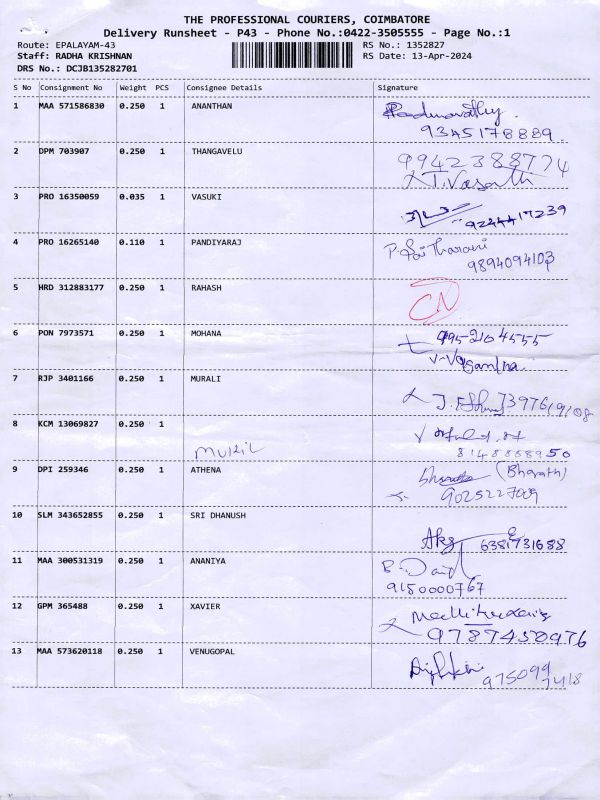 THE PROFESSIONAL COURIERS, COIMBATORE
Delivery Runsheet - P43 - Phone No.:0422-3505555 - Page No.:1
Route: EPALAYAM-43
RS No.: 1352827
Staff: RADHA KRISHNAN
RS Date: 13-Apr-2024
DRS No.: DCJB135282701
S No Consignment No Weight PCS Consignee Details Signature
1 MAA 571586830 0.250 1 ANANTHAN
9345178889
2 DPM 703907 0.250 1 THANGAVELU
9942388774
T. Vasanthi
3 PRO 16350059 0.035 1 VASUKI
4 PRO 16265140 0.110 1 PANDIYARAJ
P. Sai Tharani
9894094103
5 HRD 312883177 0.250 1 RAHASH
CN
6 PON 7973571 0.250 1 MOHANA
V. Vasantha
7 RJP 3401166 0.250 1 MURALI
8 KCM 13069827 0.250 1
MUKIL
8148868950
9 DPI 259346 0.250 1 ATHENA
(Bharath)
9025227009
10 SLM 343652855 0.250 1 SRI DHANUSH
6381731688
11 MAA 300531319 0.250 1 ANANIYA
9150000767
12 GPM 365488 0.250 1 XAVIER
9787430976
13 MAA 573620118 0.250 1 VENUGOPAL
975099
7418